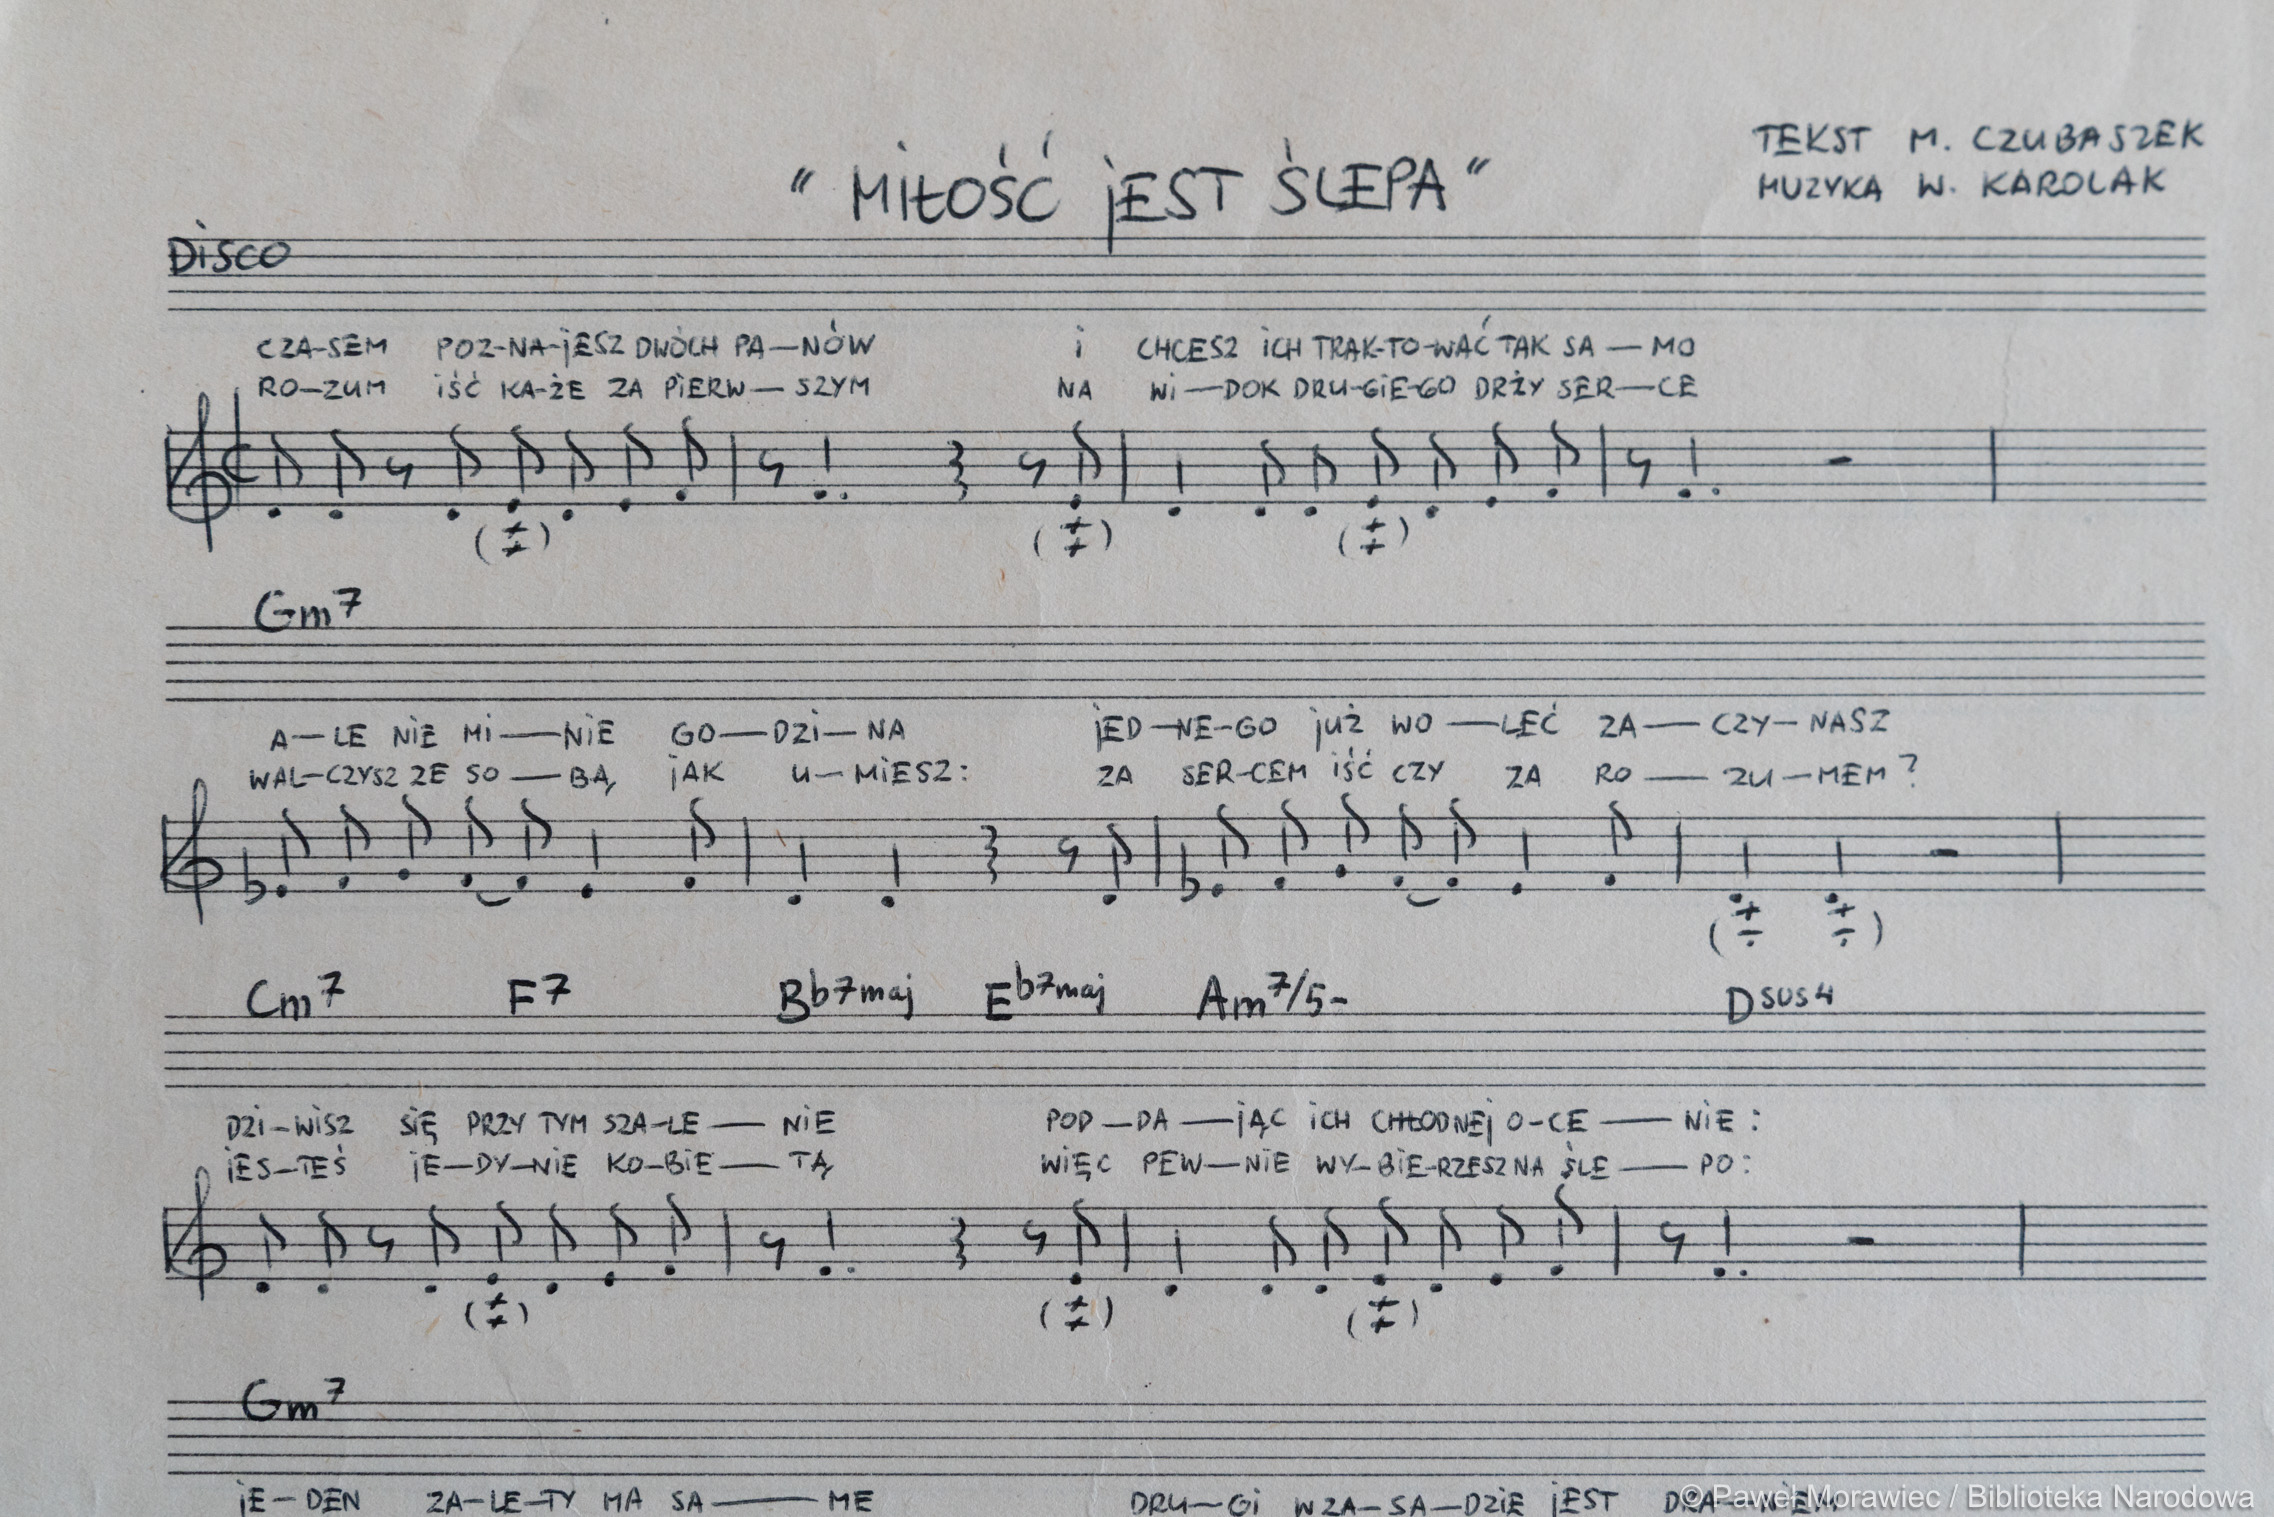 TEKST M. CZUBASZEK
"MIŁOŚĆ jEST ŚLEPA"
MUZYKA W. KAROLAK
DISCO
CZA-SEM POZ-NA-jESZ DWÓCH PA—NÓW i CHCESZ ICH TRAK-TO-WAĆ TAK SA—MO
RO-ZUM iŚĆ KA-ŻE ZA PIERW—SZYM NA WI—DOK DRU-GIE-GO DRŻY SER—CE
Gm7
A—LE NIE MI—NIE GO—DZI—NA jED—NE-GO jUŻ WO—LEĆ ZA—CZY—NASZ
WAL-CZYSZ ZE SO—BĄ, jAK U—MIESZ: ZA SER-CEM IŚĆ CZY ZA RO—ZU—MEM?
Cm7 F7 Bb7maj Eb7maj Am7/5- Dsus4
DZI-WISZ SIĘ PRZY TYM SZA-LE—NIE POD—DA—jĄC ICH CHŁODNEj O-CE—NIE:
jES-TEŚ jE—DY—NIE KO-BIE—TĄ WIĘC PEW—NIE WY-BIE-RZESZ NA ŚLE—PO:
Gm7
jE—DEN ZA-LE-TY MA SA—ME DRU—GI W ZA-SA—DZIE jEST
© Paweł Morawiec / Biblioteka Narodowa